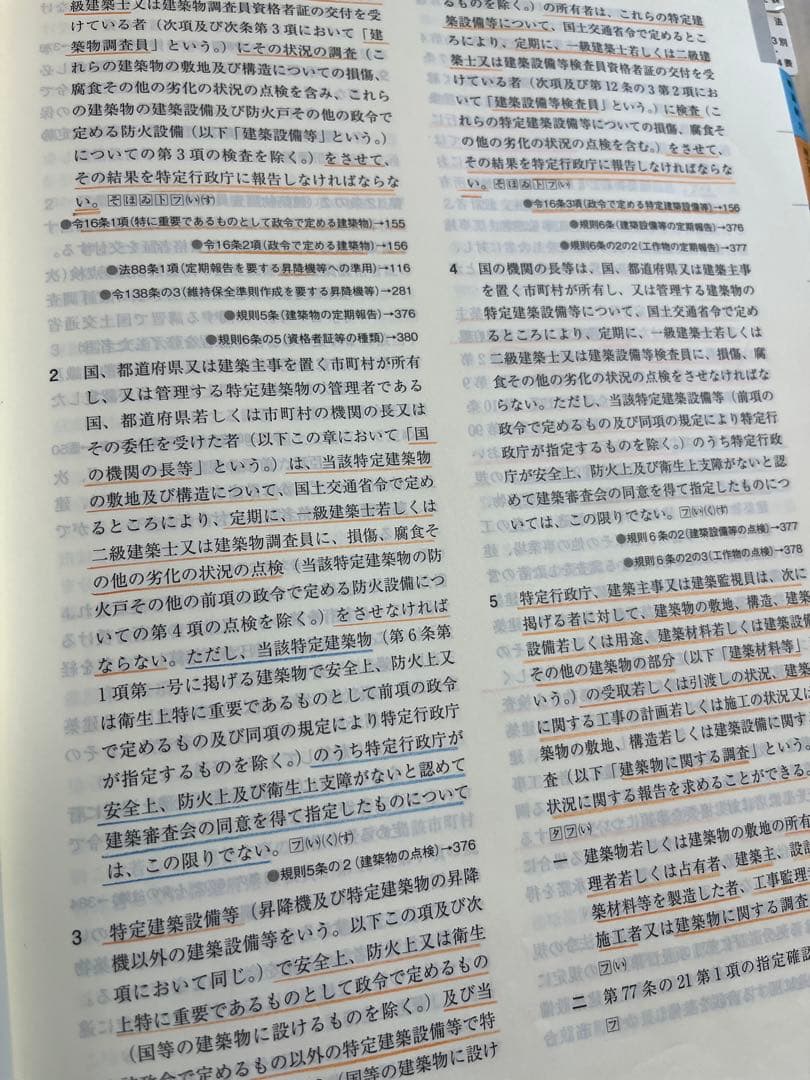 級建築士又は建築物調査員資格者証の交付を受
けている者（次項及び次条第3項において「建
築物調査員」という。）にその状況の調査（こ
れらの建築物の敷地及び構造についての損傷、
腐食その他の劣化の状況の点検を含み、これら
の建築物の建築設備及び防火戸その他の政令で
定める防火設備（以下「建築設備等」という。）
についての第3項の検査を除く。）をさせて、
その結果を特定行政庁に報告しなければならな
い。そほゐトフ(い)(す)
●令16条1項(特に重要であるものとして政令で定める建築物)→155
●令16条2項(政令で定める建築物)→156
●法88条1項(定期報告を要する昇降機等への準用)→116
●令138条の3(維持保全準則作成を要する昇降機等)→281
●規則5条(建築物の定期報告)→376
●規則6条の5(資格者証等の種類)→380
2 国、都道府県又は建築主事を置く市町村が所有
し、又は管理する特定建築物の管理者である
国、都道府県若しくは市町村の機関の長又は
その委任を受けた者（以下この章において「国
の機関の長等」という。）は、当該特定建築物
の敷地及び構造について、国土交通省令で定め
るところにより、定期に、一級建築士若しくは
二級建築士又は建築物調査員に、損傷、腐食そ
の他の劣化の状況の点検（当該特定建築物の防
火戸その他の前項の政令で定める防火設備につ
いての第4項の点検を除く。）をさせなければ
ならない。ただし、当該特定建築物（第6条第
1項第一号に掲げる建築物で安全上、防火上又
は衛生上特に重要であるものとして前項の政令
で定めるもの及び同項の規定により特定行政庁
が指定するものを除く。）のうち特定行政庁が
安全上、防火上及び衛生上支障がないと認めて
建築審査会の同意を得て指定したものについて
は、この限りでない。フ(い)(く)(す)
●規則5条の2(建築物の点検)→376
3 特定建築設備等（昇降機及び特定建築物の昇降
機以外の建築設備等をいう。以下この項及び次
項において同じ。）で安全上、防火上又は衛生
上特に重要であるものとして政令で定めるもの
（国等の建築物に設けるものを除く。）及び当
該政令で定めるもの以外の特定建築設備等で特
（国等の建築物に設け
るもの）の所有者は、これらの特定建
築設備等について、国土交通省令で定めると
ころにより、定期に、一級建築士若しくは二級建
築士又は建築設備等検査員資格者証の交付を受
けている者（次項及び第12条の3第2項にお
いて「建築設備等検査員」という。）に検査（こ
れらの特定建築設備等についての損傷、腐食そ
の他の劣化の状況の点検を含む。）をさせて、
その結果を特定行政庁に報告しなければならな
い。そほゐトフ(い)(す)
●令16条3項(政令で定める特定建築設備等)→156
●規則6条(建築設備等の定期報告)→376
●規則6条の2の2(工作物の定期報告)→377
4 国の機関の長等は、国、都道府県又は建築主事
を置く市町村が所有し、又は管理する建築物の
特定建築設備等について、国土交通省令で定め
るところにより、定期に、一級建築士若しくは
二級建築士又は建築設備等検査員に、損傷、腐
食その他の劣化の状況の点検をさせなければな
らない。ただし、当該特定建築設備等（前項の
政令で定めるもの及び同項の規定により特定行
政庁が指定するものを除く。）のうち特定行政
庁が安全上、防火上及び衛生上支障がないと認
めて建築審査会の同意を得て指定したものにつ
いては、この限りでない。フ(い)(く)(す)
●規則6条の2(建築設備等の点検)→377
●規則6条の2の3(工作物の点検)→378
5 特定行政庁、建築主事又は建築監視員は、次に
掲げる者に対して、建築物の敷地、構造、建築
設備若しくは用途、建築材料若しくは建築設備
その他の建築物の部分（以下「建築材料等」
いう。）の受取若しくは引渡しの状況、建築
に関する工事の計画若しくは施工の状況又は
築物の敷地、構造若しくは建築設備に関する
査（以下「建築物に関する調査」という。
状況に関する報告を求めることができる。
タフ(い)
一 建築物若しくは建築物の敷地の所有
理者若しくは占有者、建築主、設計
築材料等を製造した者、工事監理者
施工者又は建築物に関する調査
フ(い)
二 第77条の21第1項の指定確認
フ